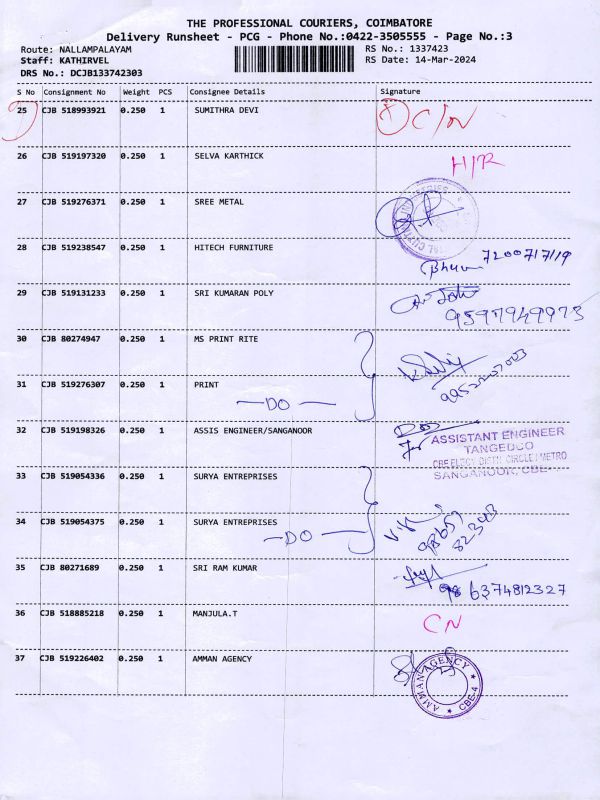 THE PROFESSIONAL COURIERS, COIMBATORE
Delivery Runsheet - PCG - Phone No.:0422-3505555 - Page No.:3
Route: NALLAMPALAYAM
RS No.: 1337423
Staff: KATHIRVEL
RS Date: 14-Mar-2024
DRS No.: DCJB133742303
S No Consignment No Weight PCS Consignee Details Signature
25 CJB 518993921 0.250 1 SUMITHRA DEVI C/N
26 CJB 519197320 0.250 1 SELVA KARTHICK H/R
27 CJB 519276371 0.250 1 SREE METAL
28 CJB 519238547 0.250 1 HITECH FURNITURE
29 CJB 519131233 0.250 1 SRI KUMARAN POLY
9597949973
30 CJB 80274947 0.250 1 MS PRINT RITE
31 CJB 519276307 0.250 1 PRINT
—DO—
32 CJB 519198326 0.250 1 ASSIS ENGINEER/SANGANOOR
ASSISTANT ENGINEER
TANGEDCO
CBE ELECY DISTN. CIRCLE / METRO
SANGANOOR, CBE-
33 CJB 519054336 0.250 1 SURYA ENTREPRISES
34 CJB 519054375 0.250 1 SURYA ENTREPRISES
—DO—
35 CJB 80271689 0.250 1 SRI RAM KUMAR
6374812327
36 CJB 518885218 0.250 1 MANJULA.T CN
37 CJB 519226402 0.250 1 AMMAN AGENCY
AMMAN AGENCY
CBE-4